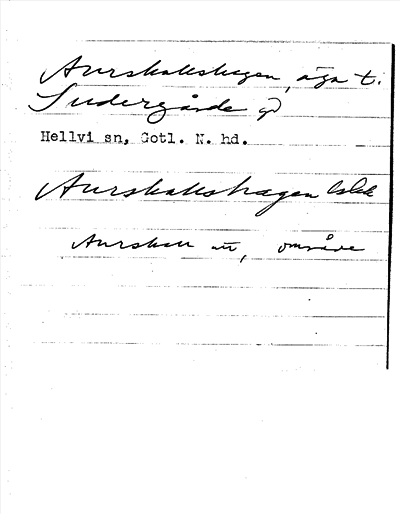 Aurskallshagen, äga t.
Sudergårde gd
Hellvi sn, Gotl. N. hd.
Aurskallshagen
Aurskall nt, område